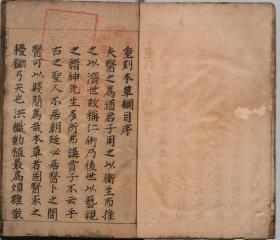 重刻本草綱目序
夫醫之為道君子用之以衛生而推
之以濟世故稱仁術乃後世以藝視
之縉紳先生多所弗講賈子不云乎
古之聖人不居朝廷必居醫卜之間
醫可以賤簡為哉本草者固醫家之
耰鋤弓矢也洪纖動植最爲煩雜